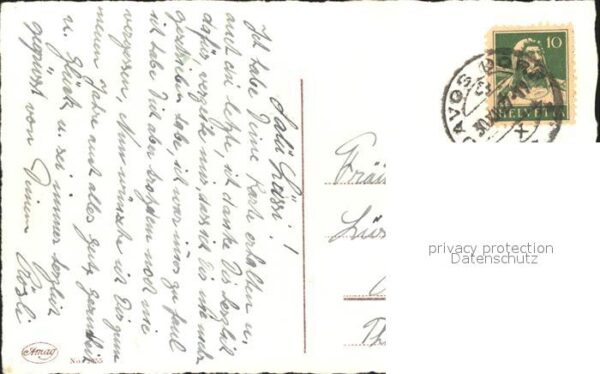 Salü Lüssi!
Ich habe Deine Karte erhalten u.
auch die letzte, ich danke Dir herzlich
dafür, vergebe mir, dass ich Dir nie mehr
geschrieben habe ich war immer zu faul
ich habe Dich aber trotzdem noch nie
vergessen, Nun wünsche ich Dir zum
neuen Jahre auch alles gute, Gesundheit
u. Glück u. sei immer herzlich
gegrüsst von Deinem
Amag
No.
Fräu
Lüs
Th
10
HELVETIA
DAVOS DORF
privacy protection
Datenschutz